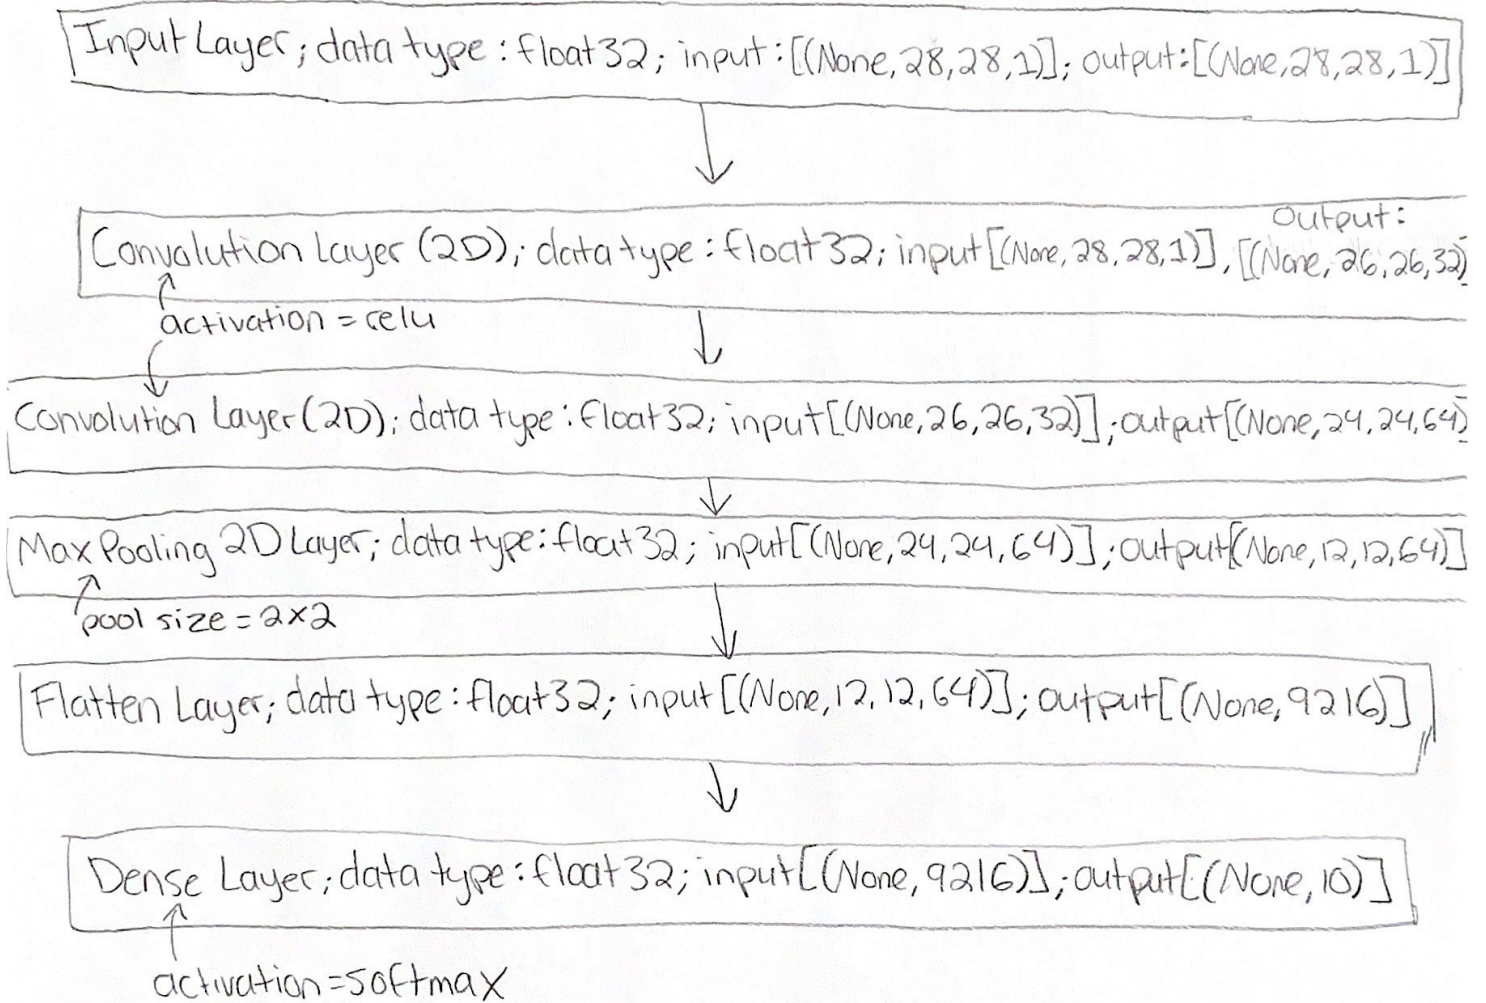 Input Layer; data type: float32; input:[(None,28,28,1)]; output:[(None,28,28,1)]
output:
Convolution Layer (2D); data type: float32; input[(None,28,28,1)], [(None,26,26,32)
activation = relu
Convolution Layer (2D); data type: float32; input[(None,26,26,32)]; output[(None,24,24,64)
Max Pooling 2D Layer; data type: float32; input[(None,24,24,64)]; output[(None,12,12,64)]
pool size = 2x2
Flatten Layer; data type: float32; input[(None,12,12,64)]; output[(None,9216)]
Dense Layer; data type: float32; input[(None,9216)]; output[(None,10)]
activation = softmax